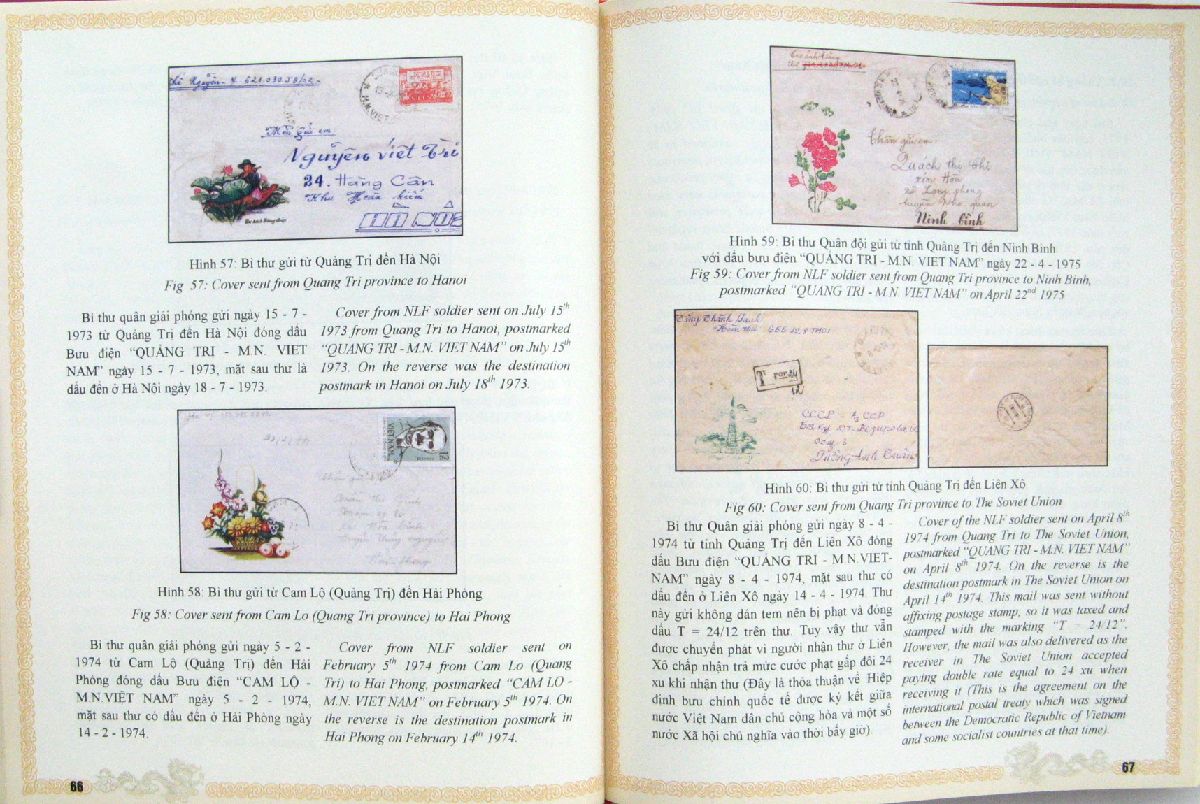 Nguyễn Viết Trì
24. Hàng Cân
Khu Hoàn Kiếm
Hình 57: Bì thư gửi từ Quảng Trị đến Hà Nội
Fig 57: Cover sent from Quang Tri province to Hanoi
Bì thư quân giải phóng gửi ngày 15 - 7 -
1973 từ Quảng Trị đến Hà Nội đóng dấu
Bưu điện “QUẢNG TRI - M.N. VIET
NAM” ngày 15 - 7 - 1973, mặt sau thư là
dấu đến ở Hà Nội ngày 18 - 7 - 1973.
Cover from NLF soldier sent on July 15th
1973 from Quang Tri to Hanoi, postmarked
“QUANG TRI - M.N. VIET NAM” on July 15th
1973. On the reverse was the destination
postmark in Hanoi on July 18th 1973.
VIET NAM
Hình 58: Bì thư gửi từ Cam Lộ (Quảng Trị) đến Hải Phòng
Fig 58: Cover sent from Cam Lo (Quang Tri province) to Hai Phong
Bì thư quân giải phóng gửi ngày 5 - 2 -
1974 từ Cam Lộ (Quảng Trị) đến Hải
Phòng đóng dấu Bưu điện “CAM LỘ -
M.N.VIỆT NAM” ngày 5 - 2 - 1974,
mặt sau thư có dấu đến ở Hải Phòng ngày
14 - 2 - 1974.
Cover from NLF soldier sent on
February 5th 1974 from Cam Lo (Quang
Tri) to Hai Phong, postmarked “CAM LO -
M.N. VIET NAM” on February 5th 1974. On
the reverse is the destination postmark in
Hai Phong on February 14th 1974.
66
Quách thị Chì
Ninh bình
Hình 59: Bì thư Quân đội gửi từ tỉnh Quảng Trị đến Ninh Bình
với dấu bưu điện “QUẢNG TRI - M.N. VIET NAM” ngày 22 - 4 - 1975
Fig 59: Cover from NLF soldier sent from Quang Tri province to Ninh Binh,
postmarked “QUANG TRI - M.N. VIET NAM” on April 22nd 1975
T
CCCP
Hình 60: Bì thư gửi từ tỉnh Quảng Trị đến Liên Xô
Fig 60: Cover sent from Quang Tri province to The Soviet Union
Bì thư Quân giải phóng gửi ngày 8 - 4 -
1974 từ tỉnh Quảng Trị đến Liên Xô đóng
dấu Bưu điện “QUẢNG TRI - M.N.VIET-
NAM” ngày 8 - 4 - 1974, mặt sau thư có
dấu đến ở Liên Xô ngày 14 - 4 - 1974. Thư
này gửi không dán tem nên bị phạt và đóng
dấu T = 24/12 trên thư. Tuy vậy thư vẫn
được chuyển phát vì người nhận thư ở Liên
Xô chấp nhận trả mức cước phạt gấp đôi 24
xu khi nhận thư (Đây là thỏa thuận về Hiệp
định bưu chính quốc tế được ký kết giữa
nước Việt Nam dân chủ cộng hòa và một số
nước Xã hội chủ nghĩa vào thời bấy giờ).
Cover of the NLF soldier sent on April 8th
1974 from Quang Tri to The Soviet Union,
postmarked “QUANG TRI - M.N. VIET NAM”
on April 8th 1974. On the reverse is the
destination postmark in The Soviet Union on
April 14th 1974. This mail was sent without
affixing postage stamp, so it was taxed and
stamped with the marking “T = 24/12”.
However, the mail was also delivered as the
receiver in The Soviet Union accepted
paying double rate equal to 24 xu when
receiving it (This is the agreement on the
international postal treaty which was signed
between the Democratic Republic of Vietnam
and some socialist countries at that time).
67